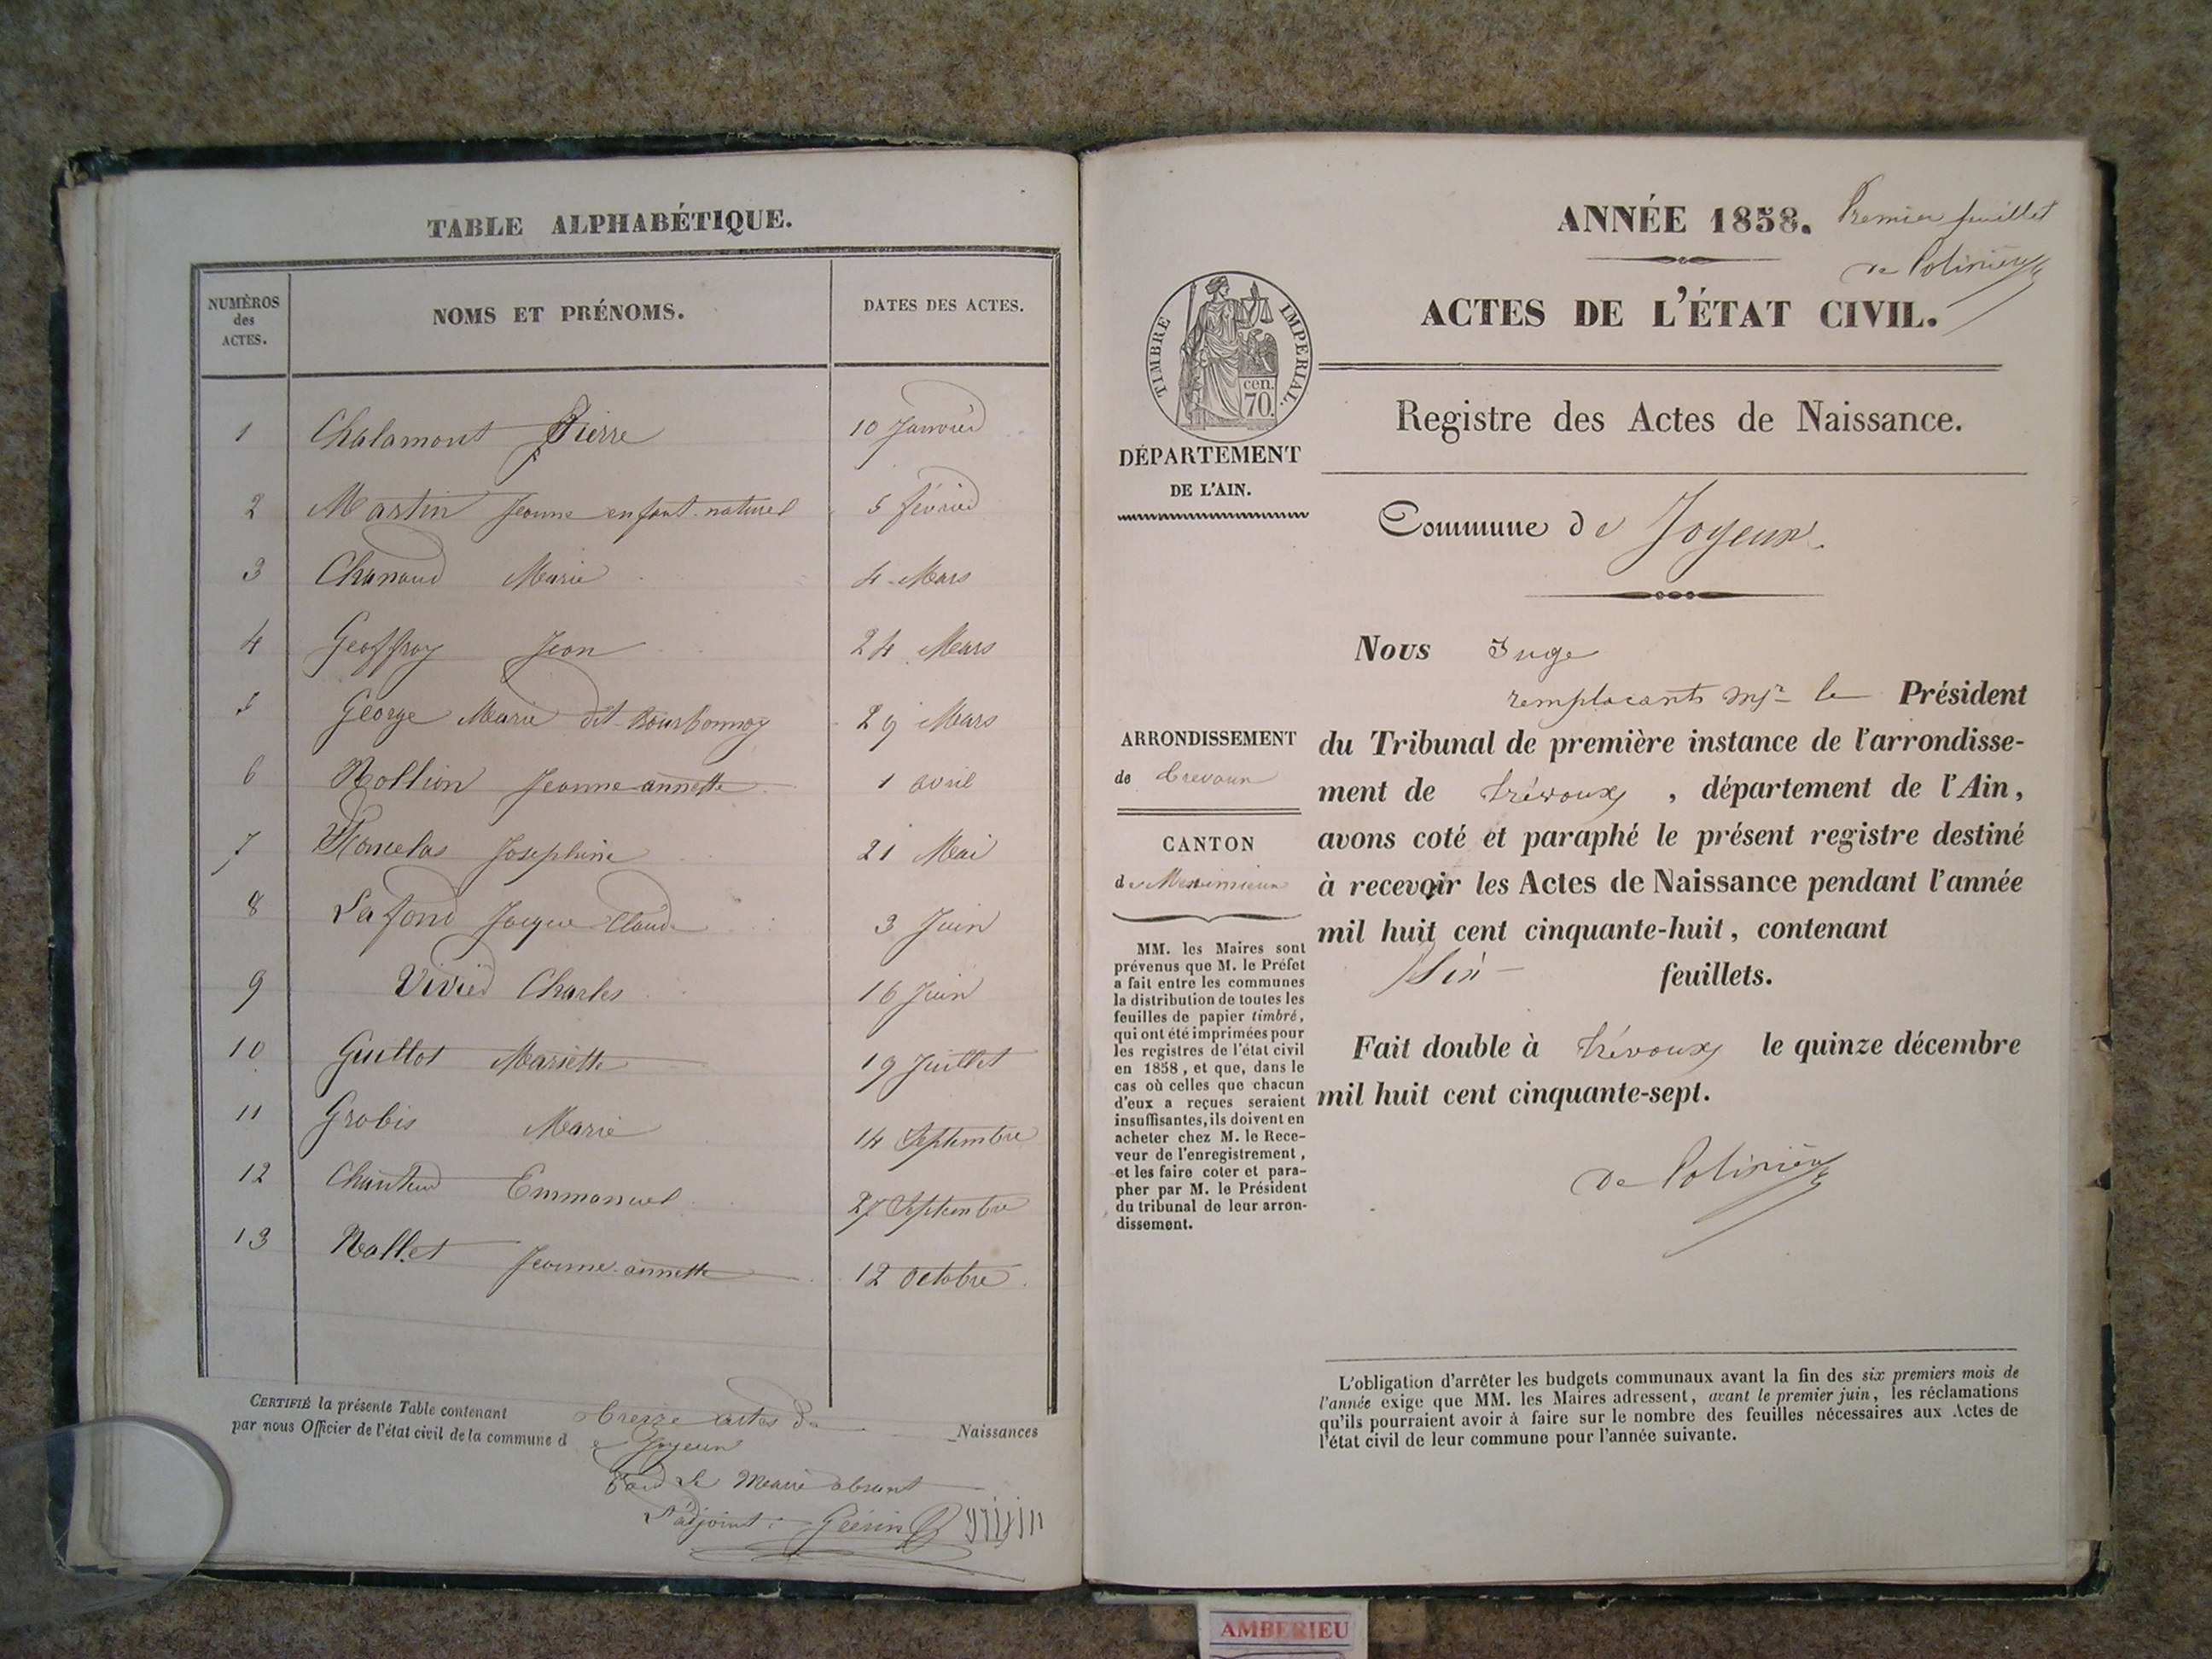 TABLE ALPHABÉTIQUE.
NUMÉROS
des
ACTES.
NOMS ET PRÉNOMS.
DATES DES ACTES.
1 Chalamont Pierre 10 Janvier
2 Martin Jeanne enfant naturel 5 février
3 Chanaud Marie 4 Mars
4 Geoffray Jean 24 Mars
5 George Marie dit Bourbonnoy 29 Mars
6 Rollion Jeanne annette 1 avril
7 Josephine 21 Mai
8 Lafond Jacque Claude 3 Juin
9 Vivier Charles 16 Juin
10 Guillot Mariette 19 Juillet
11 Grobis Marie 14 Septembre
12 Emmanuel 27 Septembre
13 Nallet Jeanne annette 12 Octobre
CERTIFIÉ la présente Table contenant treize actes de Naissances
par nous Officier de l'état civil de la commune de Joyeux
Pour le Maire absent
L'adjoint : Guérin
ANNÉE 1858. Premier feuillet
de Polinière
ACTES DE L'ÉTAT CIVIL.
TIMBRE IMPERIAL.
cen.
70.
Registre des Actes de Naissance.
DÉPARTEMENT
DE L'AIN.
Commune de Joyeux
Nous Juge
remplacant Mr le Président
du Tribunal de première instance de l'arrondisse-
ment de trévoux, département de l'Ain,
avons coté et paraphé le présent registre destiné
à recevoir les Actes de Naissance pendant l'année
mil huit cent cinquante-huit, contenant
Six feuillets.
Fait double à trévoux le quinze décembre
mil huit cent cinquante-sept.
de Polinière
ARRONDISSEMENT
de trevoux
CANTON
de Meximieux
MM. les Maires sont
prévenus que M. le Préfet
a fait entre les communes
la distribution de toutes les
feuilles de papier timbré,
qui ont été imprimées pour
les registres de l'état civil
en 1858, et que, dans le
cas où celles que chacun
d'eux a reçues seraient
insuffisantes, ils doivent en
acheter chez M. le Rece-
veur de l'enregistrement,
et les faire coter et para-
pher par M. le Président
du tribunal de leur arron-
dissement.
L'obligation d'arrêter les budgets communaux avant la fin des six premiers mois de
l'année exige que MM. les Maires adressent, avant le premier juin, les réclamations
qu'ils pourraient avoir à faire sur le nombre des feuilles nécessaires aux Actes de
l'état civil de leur commune pour l'année suivante.
AMBERIEU